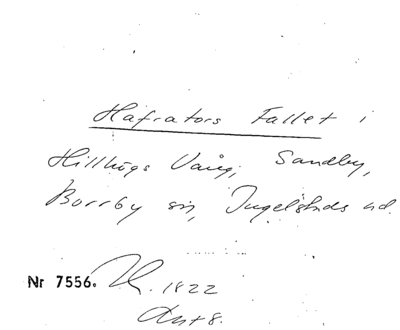 Hafrators Fallet i
Hillhögs Vång, Sandby,
Borrby sn, Ingelstads hd.
Nr 7556. 1822